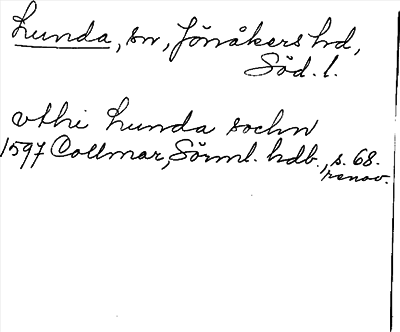 Lunda, sn, Jönåkers hd,
Söd. l.
vthi Lunda sochn
1597 Collmar, Sörml. hdb., s. 68.
renov.